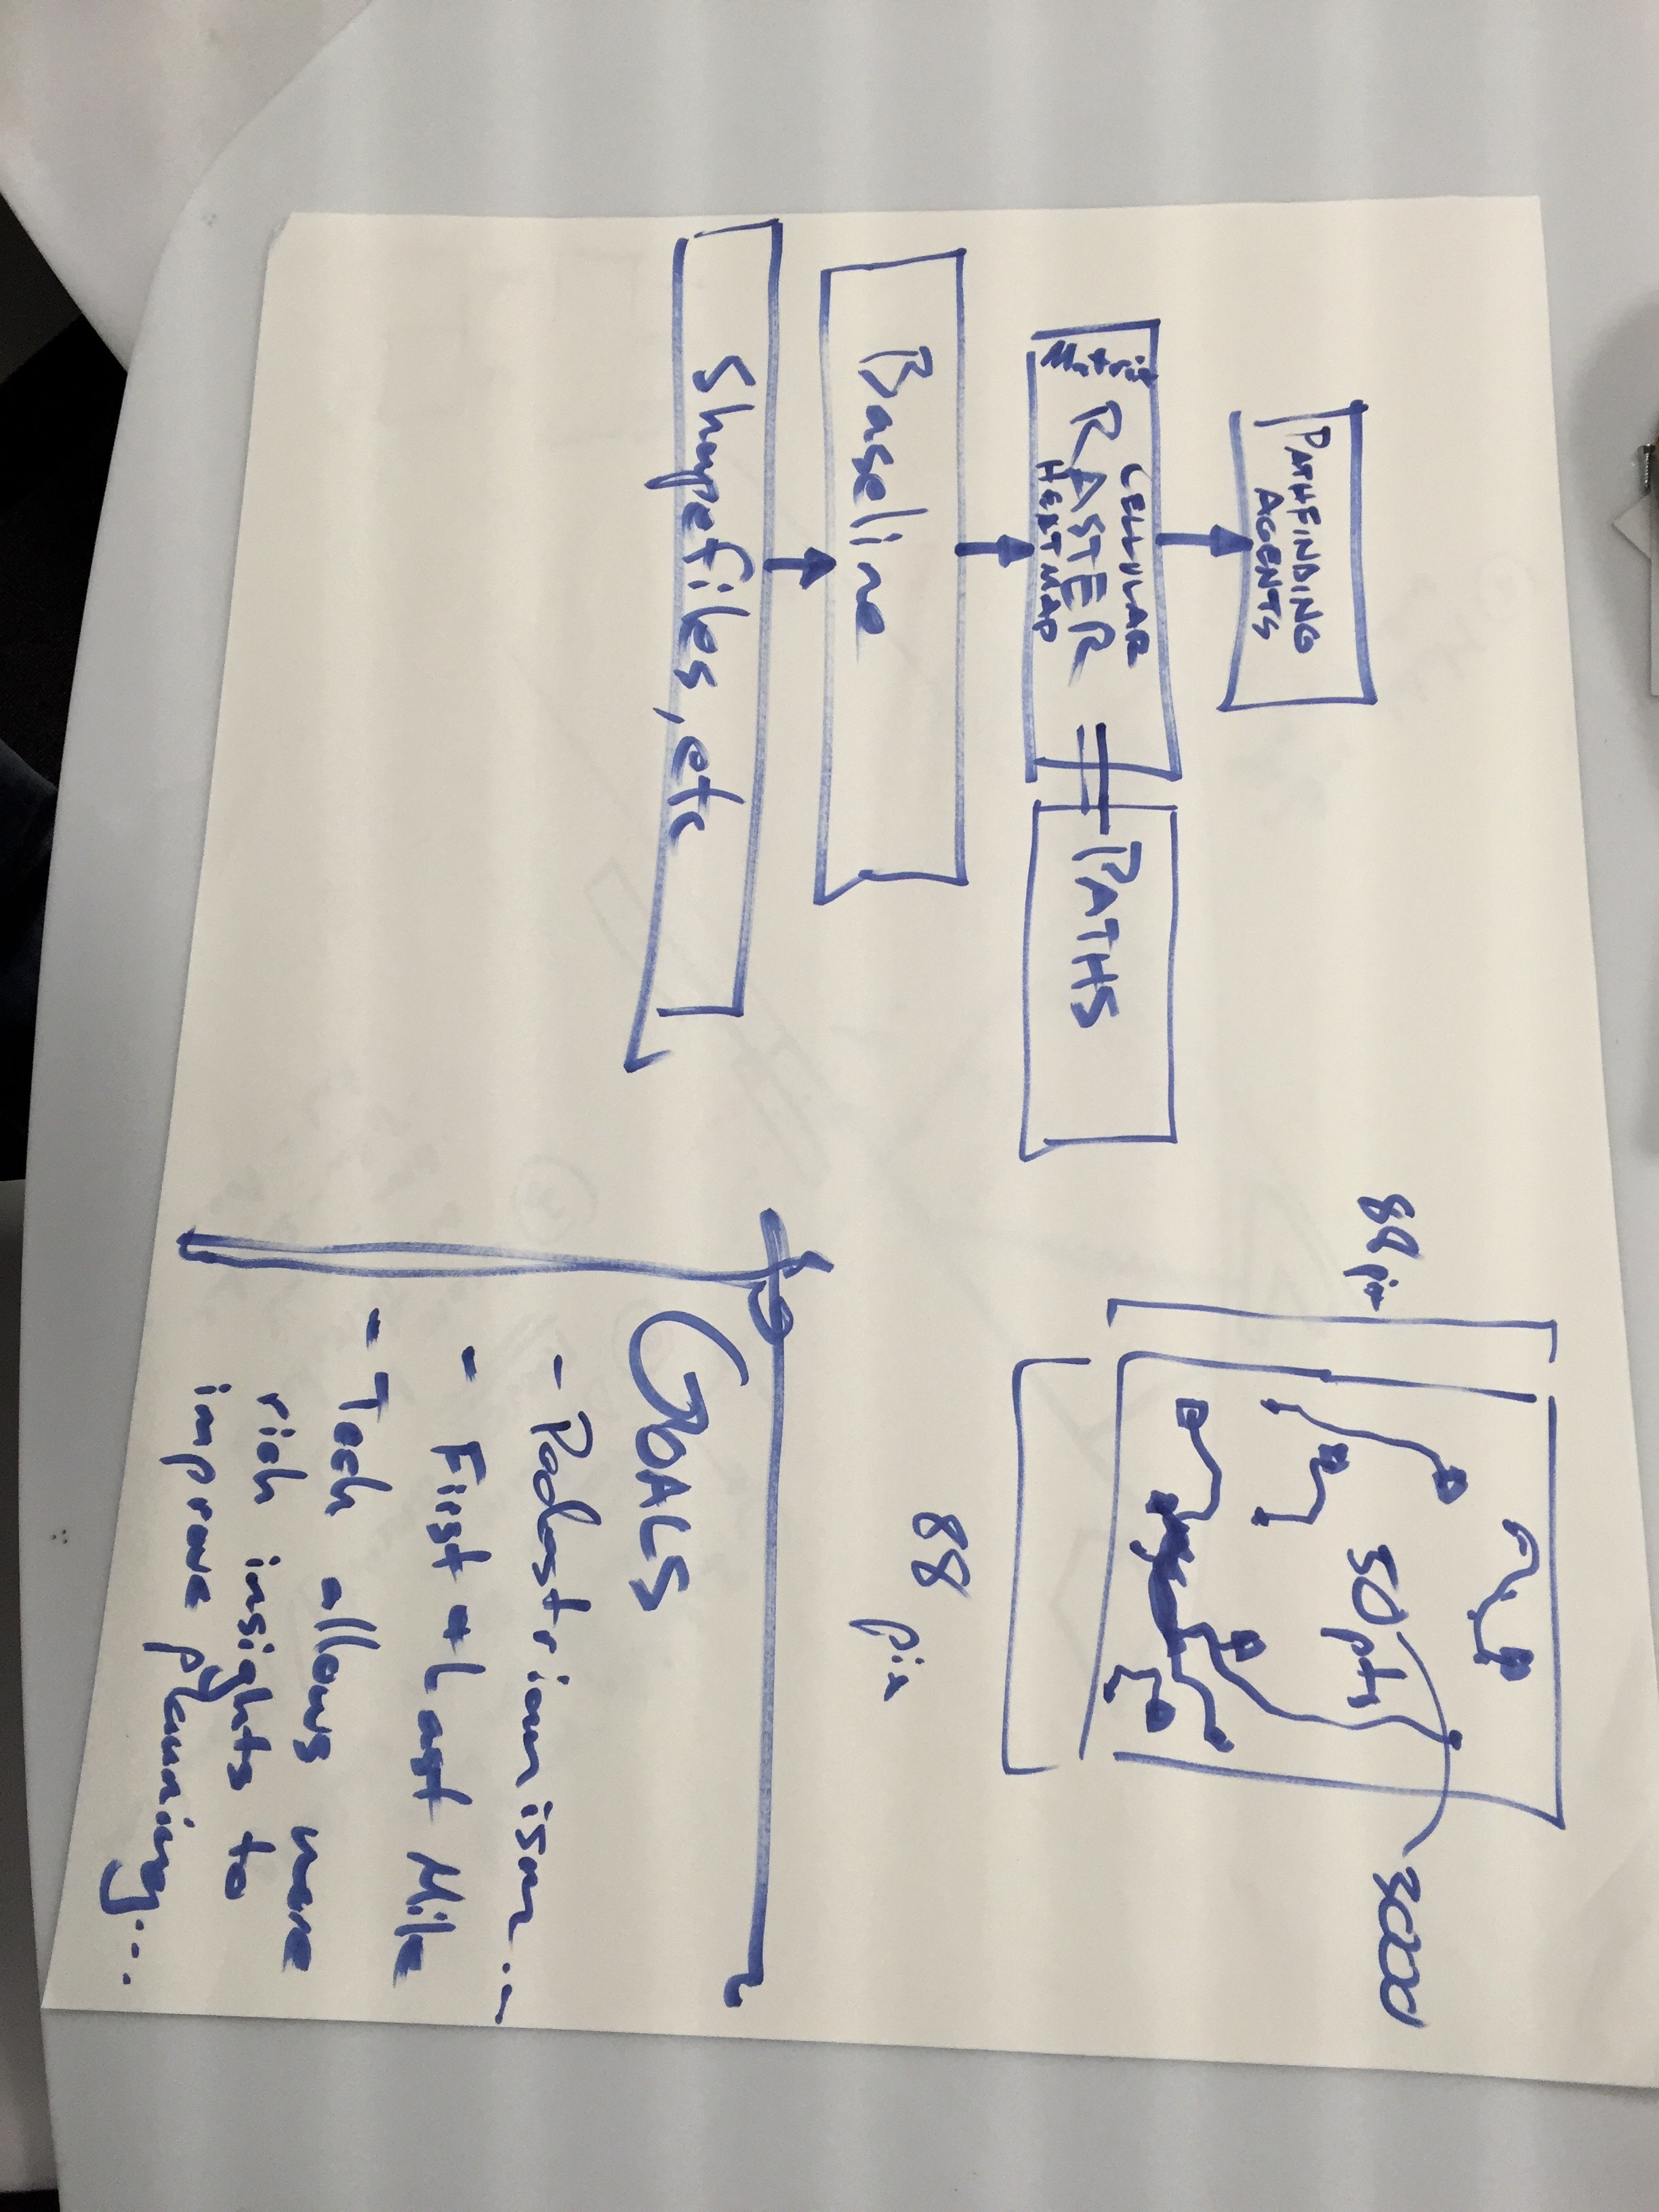 PATHFINDING
AGENTS
Matrix
CELLULAR
RASTER
HEATMAP
PATHS
Baseline
Shapefiles, etc
88 pix
50 pts
3000
88 pix
GOALS
- Pedestrianism...
- First & Last Mile
- Tech allows more
rich insights to
improve planning...